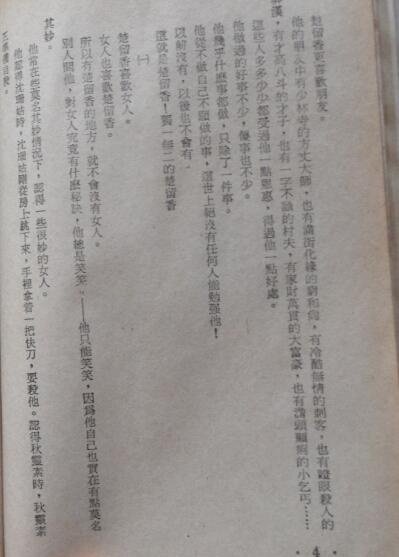 楚留香更喜歡朋友。
他的朋友中有少林寺的方丈大師，也有滿街化緣的窮和尚，有冷酷無情的刺客，也有瞪眼殺人的
漢，有才高八斗的才子，也有一字不識的村夫，有家財萬貫的大富豪，也有滿頭癩痢的小乞丐……
這些人多多少少都受過他一點恩惠，得過他一點好處。
他做過的好事不少，傻事也不少。
他幾乎什麼事都做，只除了一件事。
他從不做自己不願做的事，這世上絕沒有任何人能勉强他！
以前沒有，以後也不會有。
這就是楚留香！獨一無二的楚留香
㈠
楚留香喜歡女人。
女人也喜歡楚留香。
所以有楚留香的地方，就不會沒有女人。
別人問他，對女人究竟有什麼秘訣，他總是笑笑。——他只能笑笑，因爲他自己也實在有點莫名
其妙。
他常在些莫名其妙情況下，認得一些很妙的女人。
他認得沈珊姑時，沈珊姑剛從房上跳下來，手裡拿着一把快刀，要殺他。認得秋靈素時，秋靈素
•4•